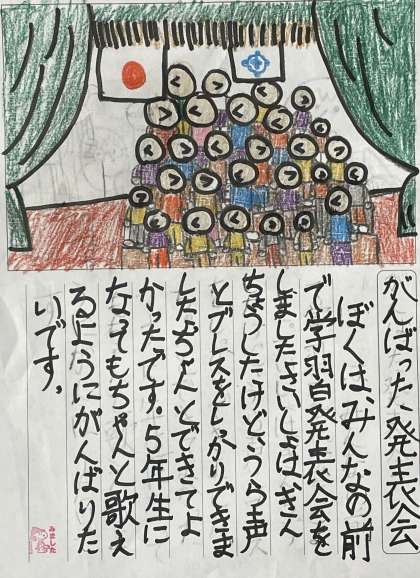 がんばった発表会
ぼくは、みんなの前
で学習発表会を
しました。さいしょは、きん
ちょうしたけど、うら声
とブレスをしっかりできま
した。ちゃんとできてよ
かったです。5年生に
なってもちゃんと歌え
るようにがんばりた
いです。
みました